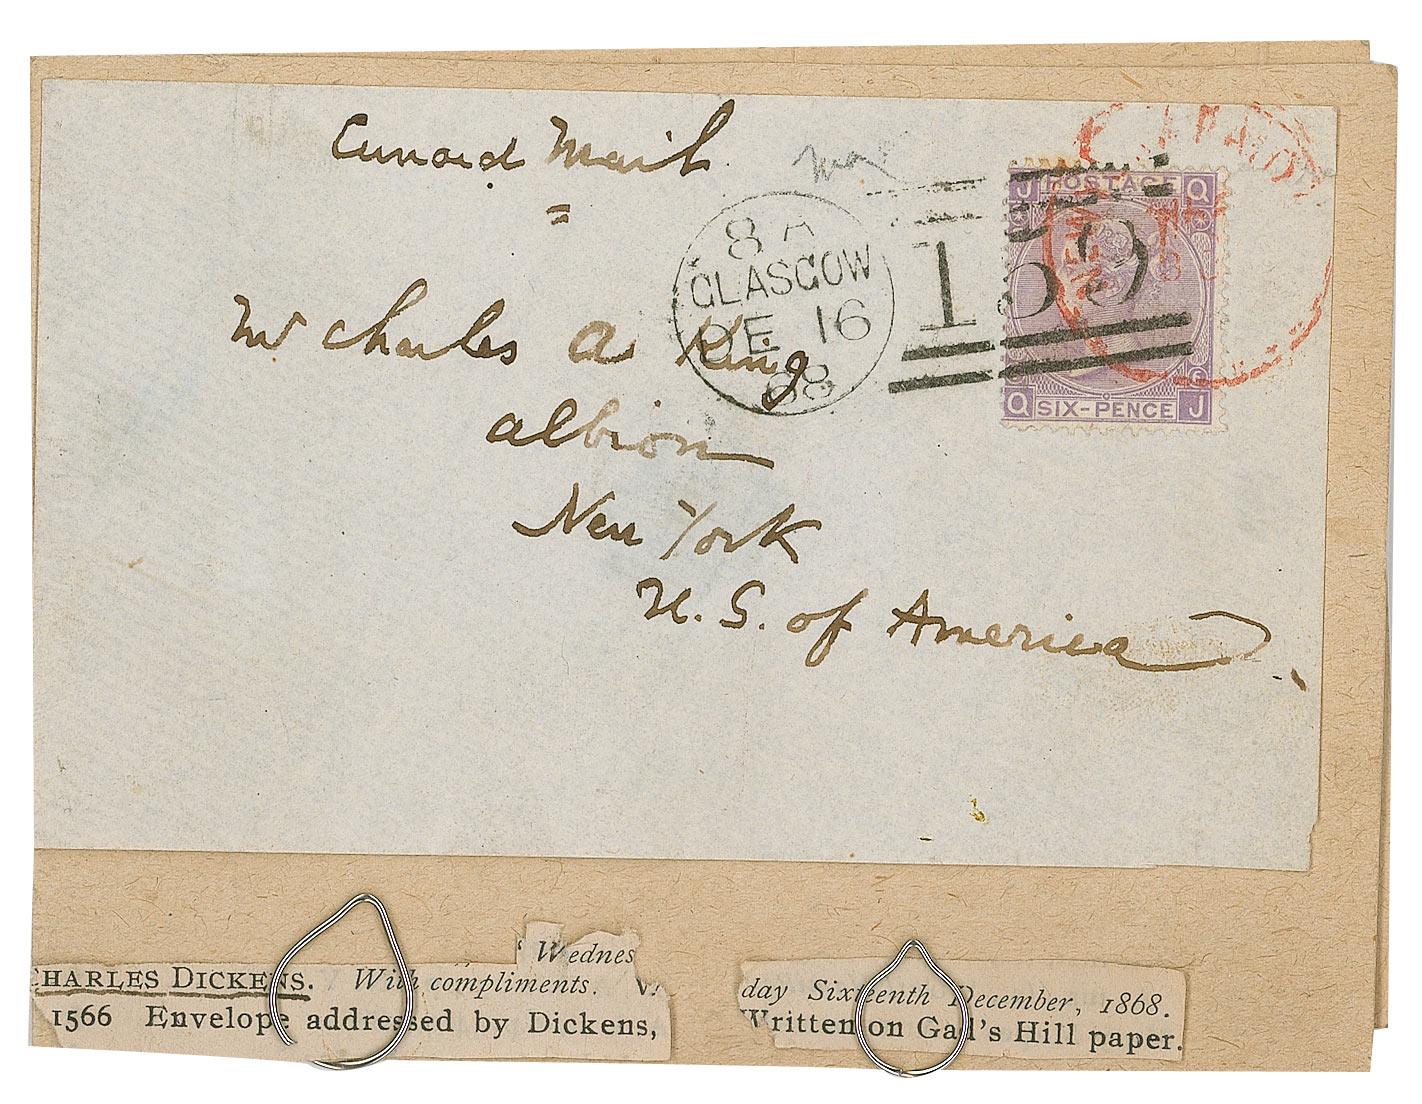 Cunard Mail
J POSTAGE Q
PAID
NEW
8 A
GLASGOW
DE 16
68
159
Mr Charles A King
Albion
New York
U.S. of America
Q SIX-PENCE J
'Wednes
CHARLES DICKENS. With compliments.
1566 Envelope addressed by Dickens,
day Sixteenth December, 1868.
Written on Gad's Hill paper.